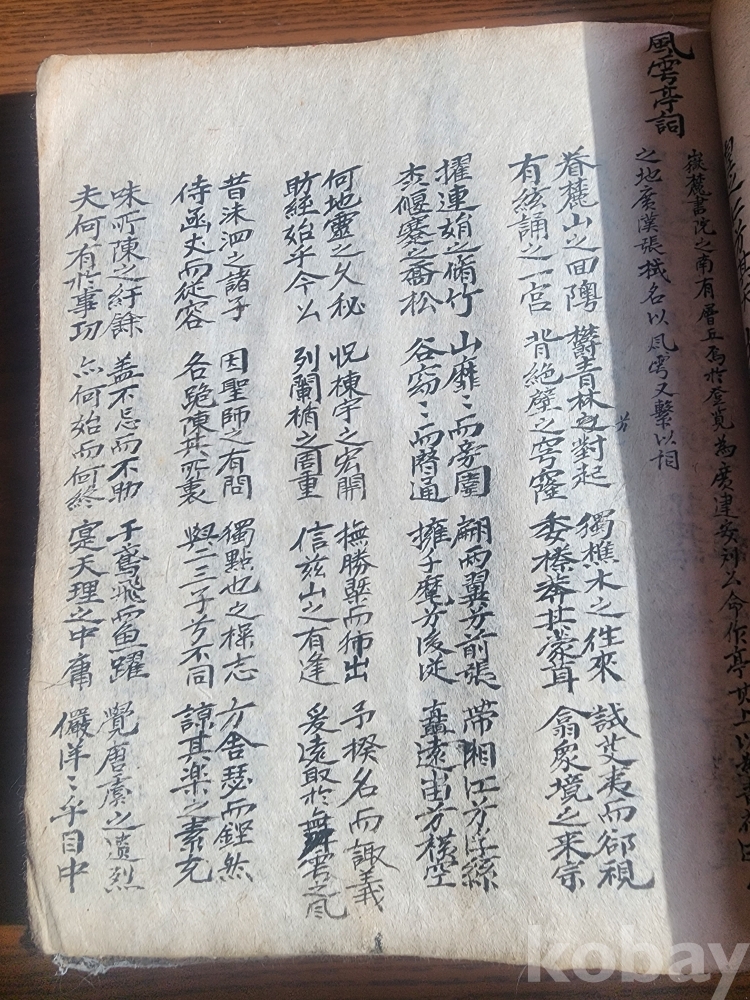 風雩亭詞
嶽麓書院之南有層丘焉於登覽為廣建安刘公命作亭其上以
之地廣漢張栻名以風雩又繫以詞
眷麓山之回隩 欝青林之對起 獨樵木之往來 試芟夷而郤視
兮
有絃誦之一宮 背絶壁之穹窿 委榛莽其蒙茸 翕衆境之来宗
擢連娟之脩竹 山靡〻而旁圍 翩両翼兮前張 帶湘江兮浮綠
森偃蹇之喬松 谷窈〻而潛通 擁千麾兮後從 矗遠岫兮横空
何地靈之久秘 怳棟宇之宏開 撫勝槩而獨出 予揆名而諏義
昉經始乎今公 列闌楯之周重 信玆山之有逢 爰遠取於舞雩之風
昔洙泗之諸子 因聖師之有問 獨點也之操志 方舍瑟而鏗然
侍函丈而從容 各跽陳其所衷 與二三子兮不同 諒其楽之素充
味所陳之紆餘 盖不忘而不助 于鳶飛而魚躍 覺唐虞之遺烈
夫何有於事功 亦何始而何終 寔天理之中庸 儼洋〻乎目中
kobay